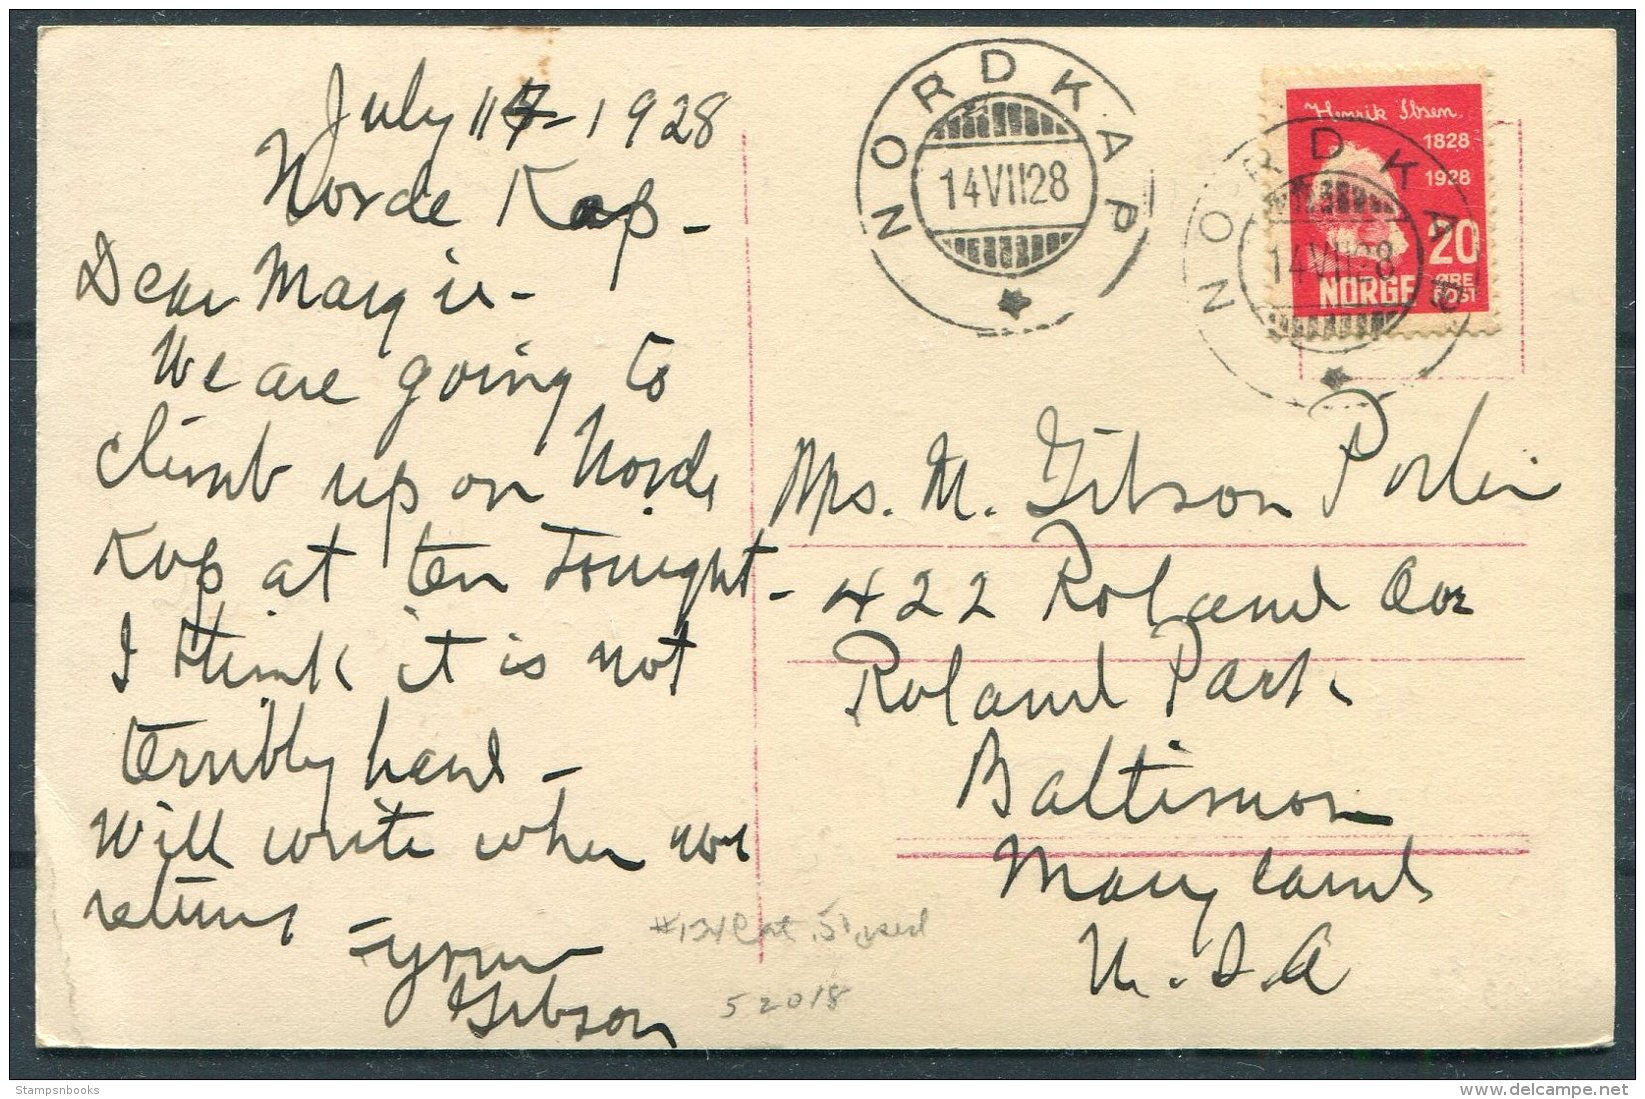 July 14 - 1928
Norde Kap -
Dear Margie -
We are going to
climb up on Norde
Kap at ten Tonight -
I think it is not
terribly hard -
Will write when we
return -
Gibson
NORDKAP
14VII28
NORDKAP
14VII28
Henrik Ibsen
1828
1928
20
ØRE
NORGE POST
Mrs. M. Gibson Porter
422 Roland Ave
Roland Park
Baltimore
Maryland
U.S.A
52018
Stampsnbooks
delcampe.net